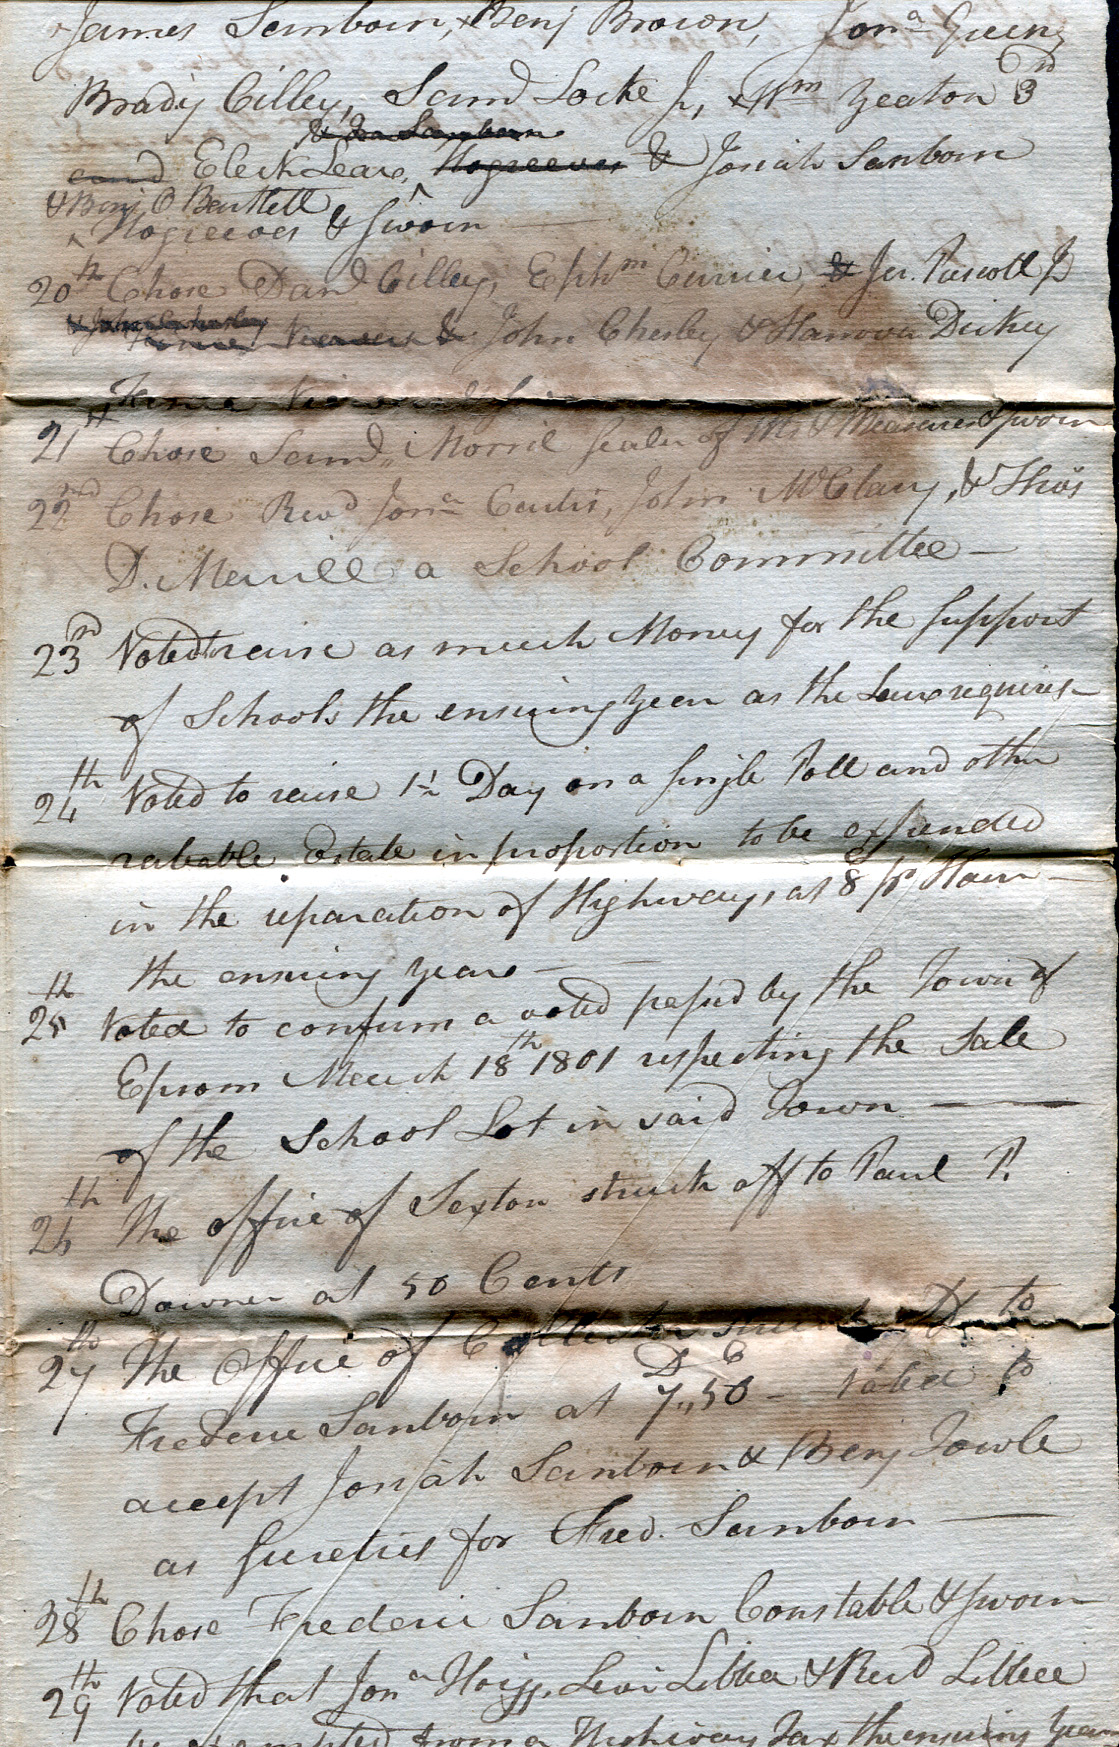 James Sanborn, & Benj Brown, Jona Green,
Brady Cilley, Saml Locke Jr, & Wm Yeaton 3rd
& Ira Sanborn
and Eleck Lear, Hogreeves & Josiah Sanborn
& Benj O Bartlett
Hogreeves & sworn
20th Chose Danl Cilley, Ephm Currier, & Jer. Prescott Jr
Fence Viewers & John Chesley & Hanover Dickey
Fence Viewers &
21st Chose Saml Morril sealer of Wts & Measures & sworn
22nd Chose Revd Jona Curtis, John McClary, & Thos
D. Merrill a School Committee —
23rd Voted to raise as much Money for the support
of Schools the ensuing year as the Law requires —
24th Voted to raise 1½ Day on a single Poll and other
rateable Estate in proportion to be expended
in the reparation of Highways, at 8 pr Hour —
the ensuing year —
25th Voted to confirm a voted passed by the Town of
Epsom March 18th 1801 respecting the Sale
of the School Lot in said Town —
26th The office of Sexton struck off to Paul P.
Downer at 50 Cents
27th The Office of Collector struck off to
D C
Frederic Sanborn at 7,,50 — Voted to
accept Josiah Sanborn & Benj Towle
as sureties for Fred. Sanborn —
28th Chose Frederic Sanborn Constable & sworn
29th Voted that Jona Hoigg, Levi Libbee & Reud Libbee
be exempted from a Highway Tax the ensuing year